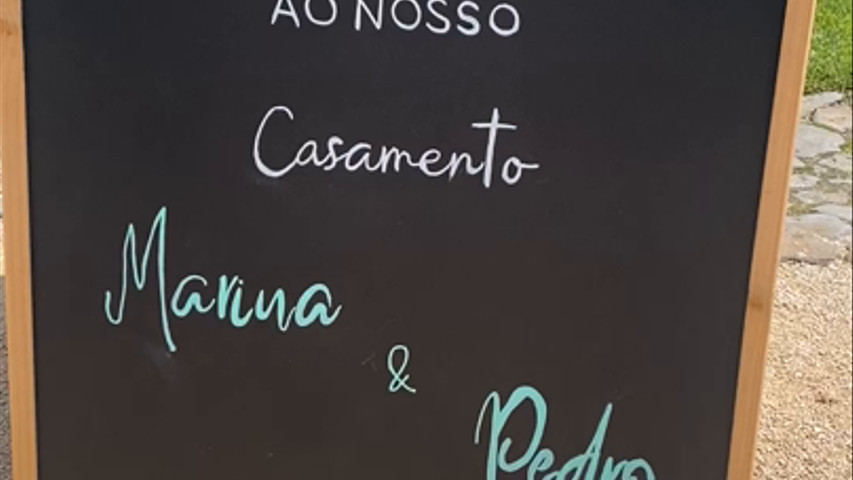 AO NOSSO
Casamento
Marina
&
Pedro